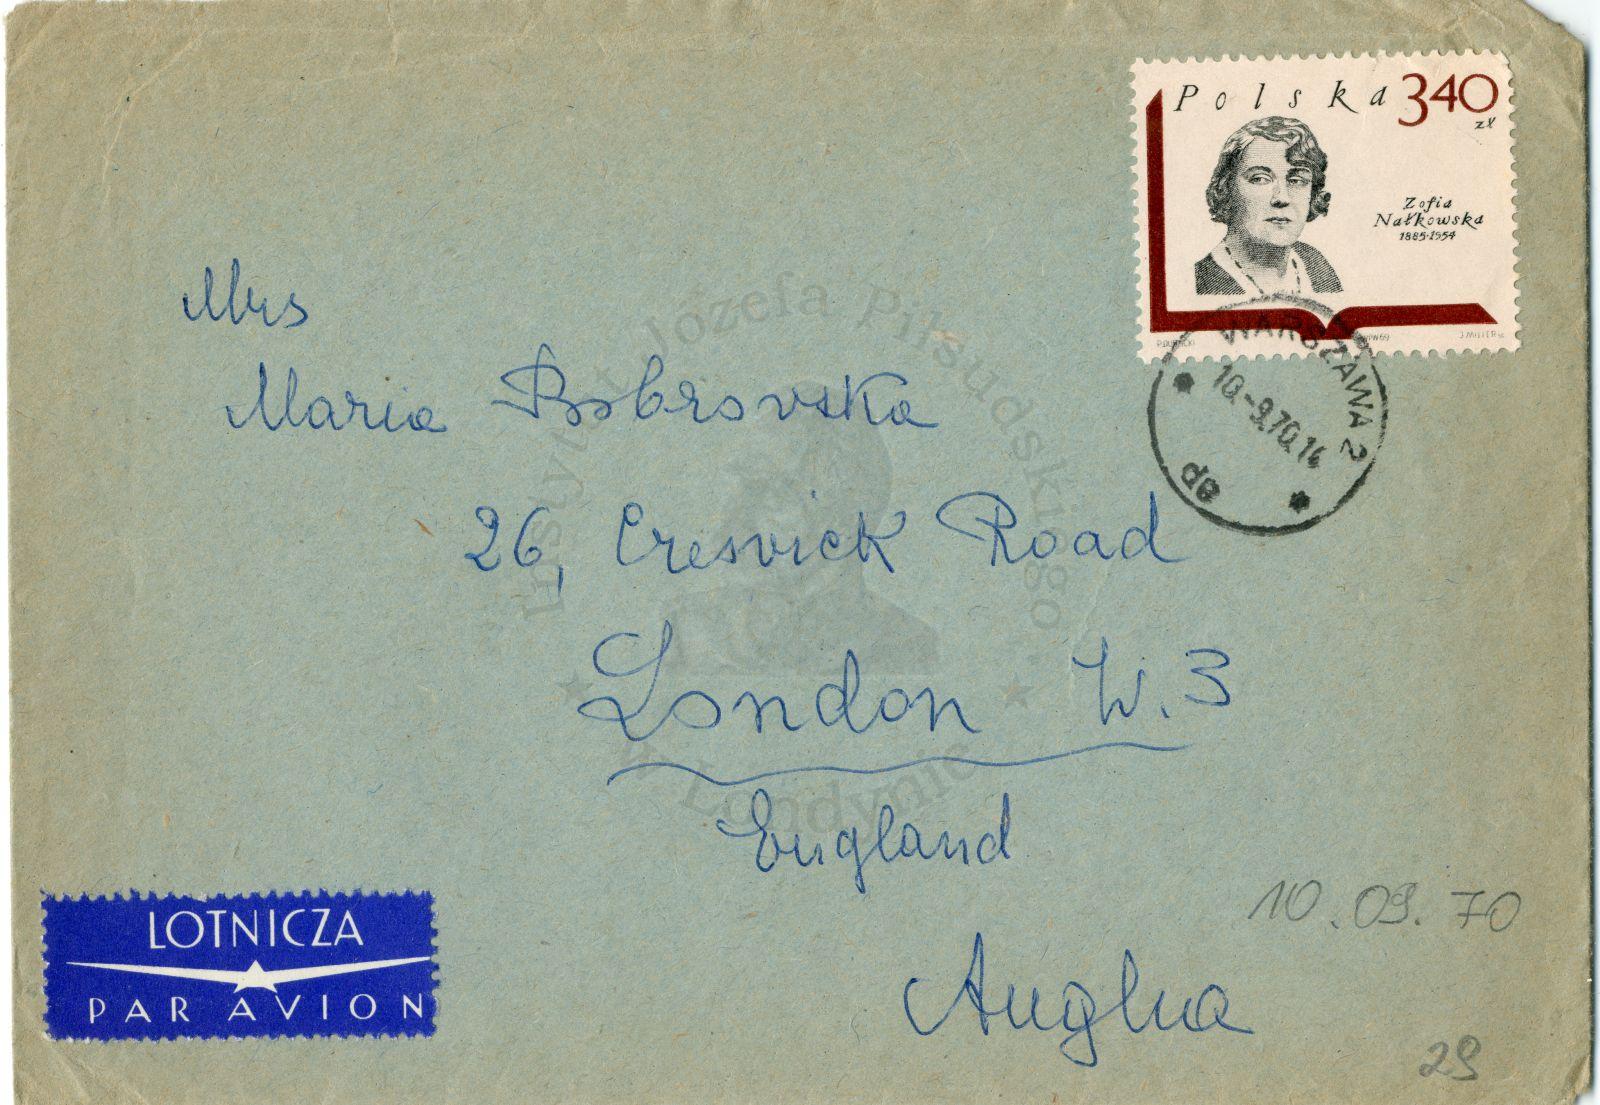 Polska 340
zł
Zofia
Nałkowska
1885-1954
P.DUDZICKI PWPW69 J.MILLER sc.
WARSZAWA 2
10.-9.70.14
ap
Mrs
Maria Bobrovska
26, Cresvick Road
London W.3
England
Anglia
10.09.70
29
LOTNICZA
PAR AVION
Instytut Józefa Piłsudskiego
w Londynie